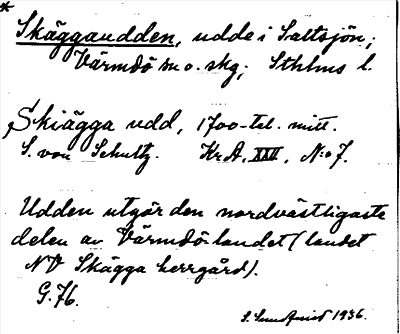 *
Skäggaudden, udde i Saltsjön;
Värmdö sn o. skg; Sthlms l.
Skiägga udd, 1700-tal. mitt.
S. von Schultz. Kr.A. XXV, N:o 7.
Udden utgör den nordvästligaste
delen av Värmdö-landet (landet
NV Skägga herrgård).
G.76.
S. Sundqvist 1936.